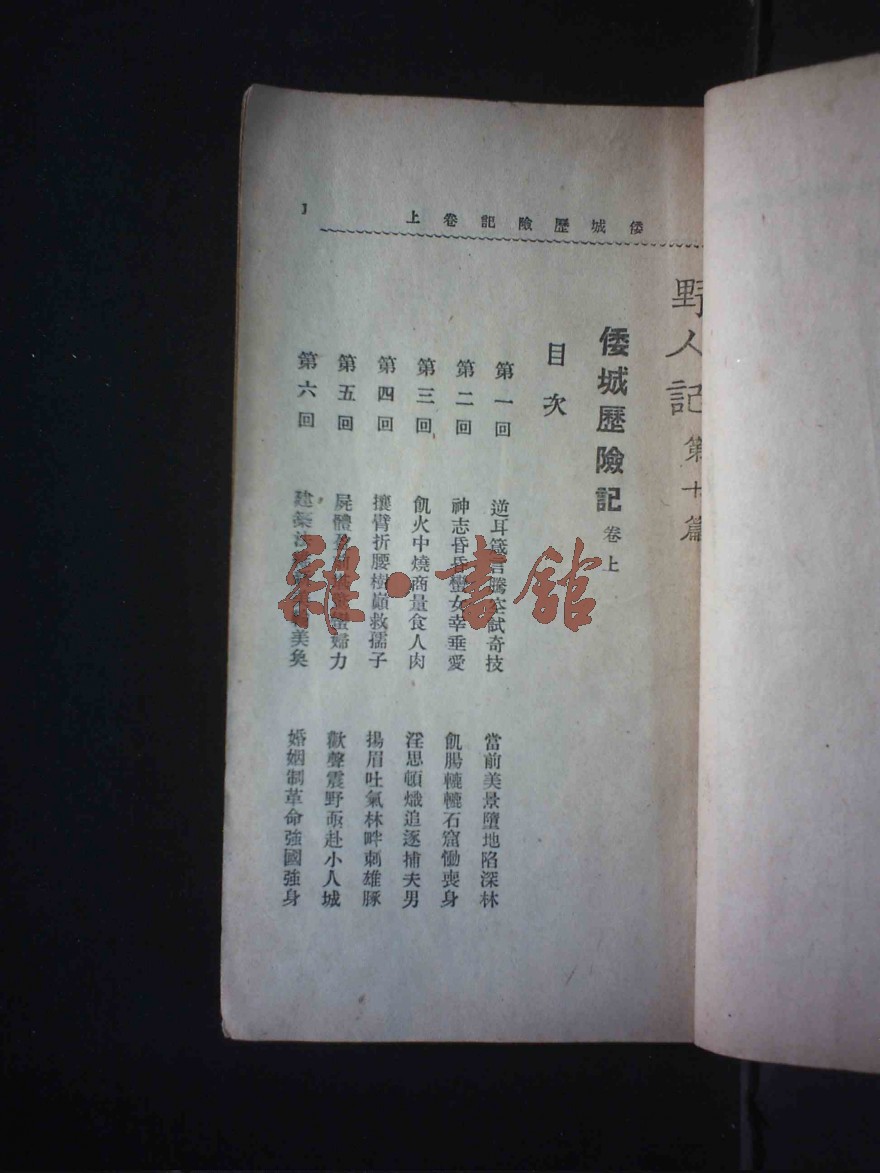 倭城歷險記卷上
1
野人記 第十篇
倭城歷險記 卷上
目次
第一回 逆耳箴言騰空試奇技 當前美景墮地陷深林
第二回 神志昏昏蠻女幸垂愛 飢腸轆轆石窟慟喪身
第三回 飢火中燒商量食人肉 淫思頓熾追逐捕夫男
第四回 攘臂折腰樹巔救孺子 揚眉吐氣林畔刺雄豚
第五回 屍體 蠻婦力 歡聲震野亟赴小人城
第六回 建築 美奐 婚姻制革命強國強身
雜·書館